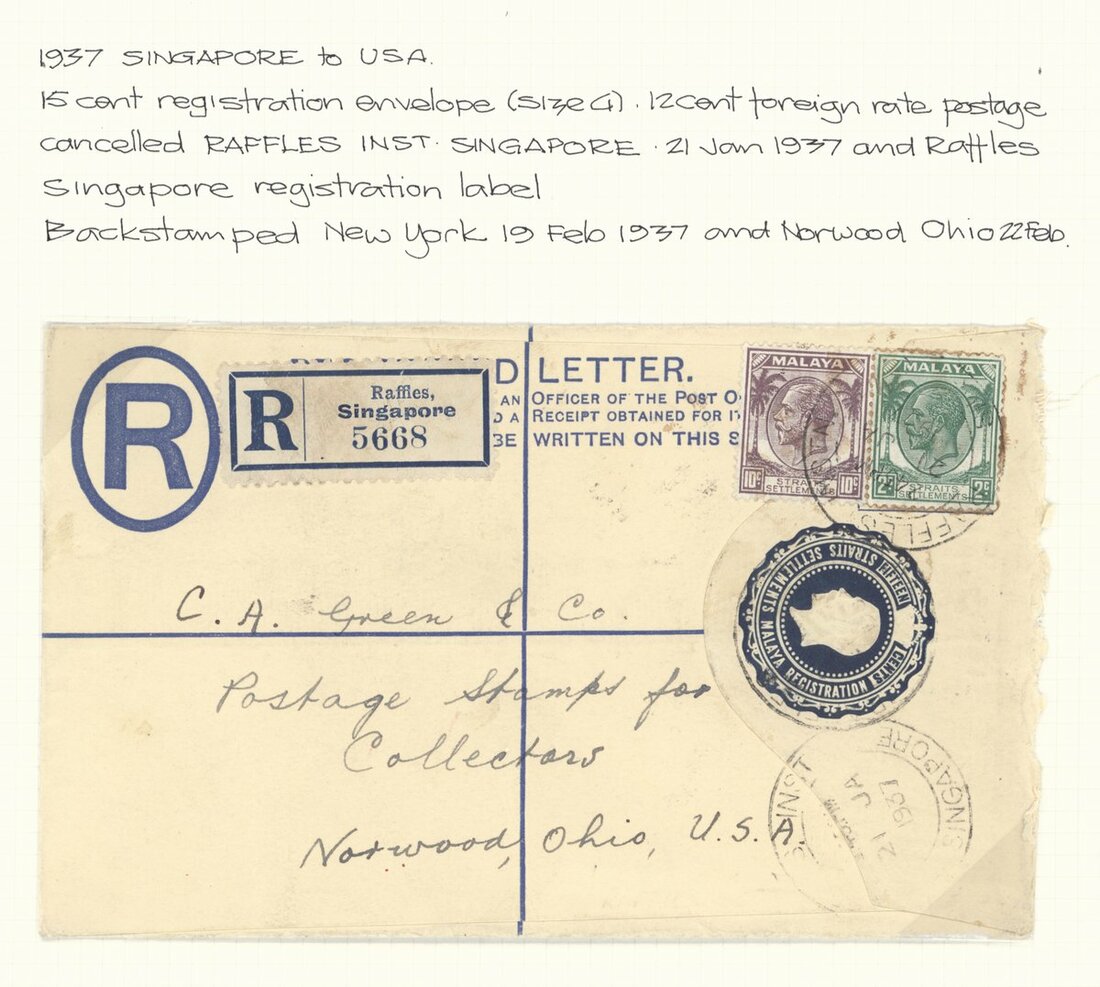 1937 SINGAPORE to USA.
15 cent registration envelope (size G). 12 cent foreign rate postage
cancelled RAFFLES INST. SINGAPORE. 21 Jan 1937 and Raffles
Singapore registration label
Backstamped New York 19 Feb 1937 and Norwood Ohio 22 Feb.
R
R
Raffles,
Singapore
5668
D LETTER.
AN OFFICER OF THE POST O
D A RECEIPT OBTAINED FOR IT
BE WRITTEN ON THIS S
MALAYA
10c 10c
STRAITS
SETTLEMENTS
MALAYA
2c 2c
STRAITS
SETTLEMENTS
RAFFLES
STRAITS SETTLEMENTS MALAYA REGISTRATION FIFTEEN CENTS
C. A. Green & Co.
Postage Stamps for
Collectors
Norwood, Ohio, U.S.A.
S INST
SINGAPORE
21 JA
1937